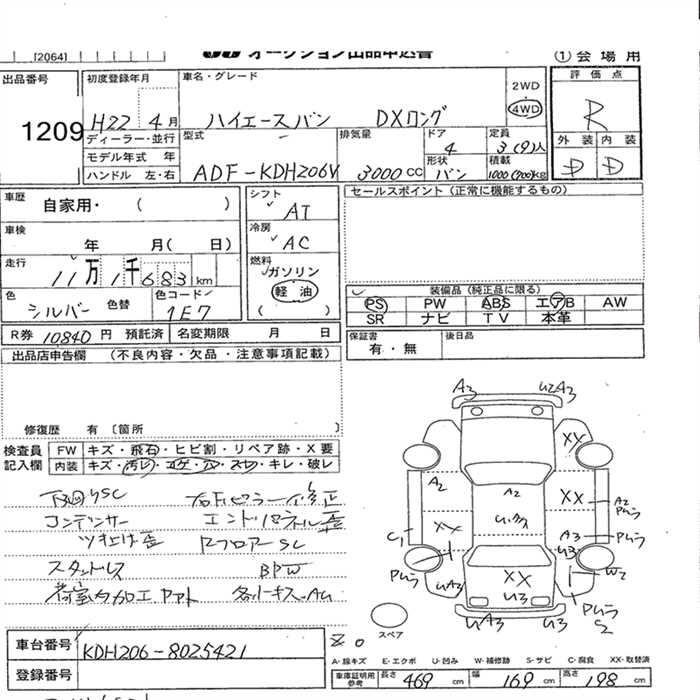 [2064]
オークション出品申込書
① 会場用
出品番号
1209
初度登録年月
H22 4月
車名・グレード
ハイエースバン DXロング
2WD
4WD
評価点
R
外装 内装
D D
ディーラー・並行
モデル年式 年
ハンドル 左・右
型式
ADF-KDH206V
排気量
3000 cc
ドア
4
形状
バン
定員
3(9)人
積載
1000(700)kg
車歴
自家用・( )
車検
年 月( 日)
走行
11万1千683km
色
シルバー 色替
色コード
1E7
シフト
AT
冷房
AC
燃料
ガソリン
軽油
( )
セールスポイント(正常に機能するもの)
装備品(純正品に限る)
PS PW ABS エアB AW
SR ナビ TV 本革
R券 10840円 預託済 名変期限 月 日
保証書
有・無
後日品
出品店申告欄 (不良内容・欠品・注意事項記載)
修復歴 有 〔箇所
検査員
記入欄
FW キズ・飛石・ヒビ割・リペア跡・X要
内装 キズ・汚レ・コゲ・穴・スレ・キレ・破レ
下廻りSC
コンデンサー
ツキ上げ歪
スタッドレス
荷室内加工
エンドパネル歪
RフロアーSC
車台番号 KDH206-8025421
登録番号
A3 U2A3
XX XX
A2 A2 XX A2
XX A3 U3
C1
W2
U2 XX U3
UA3 U3
S2
スペア
A-線キズ E-エクボ U-凹み W-補修跡 S-サビ C-腐食 XX-取替済
車庫証明用
参考
長さ 469 cm 幅 169 cm 高さ 198 cm